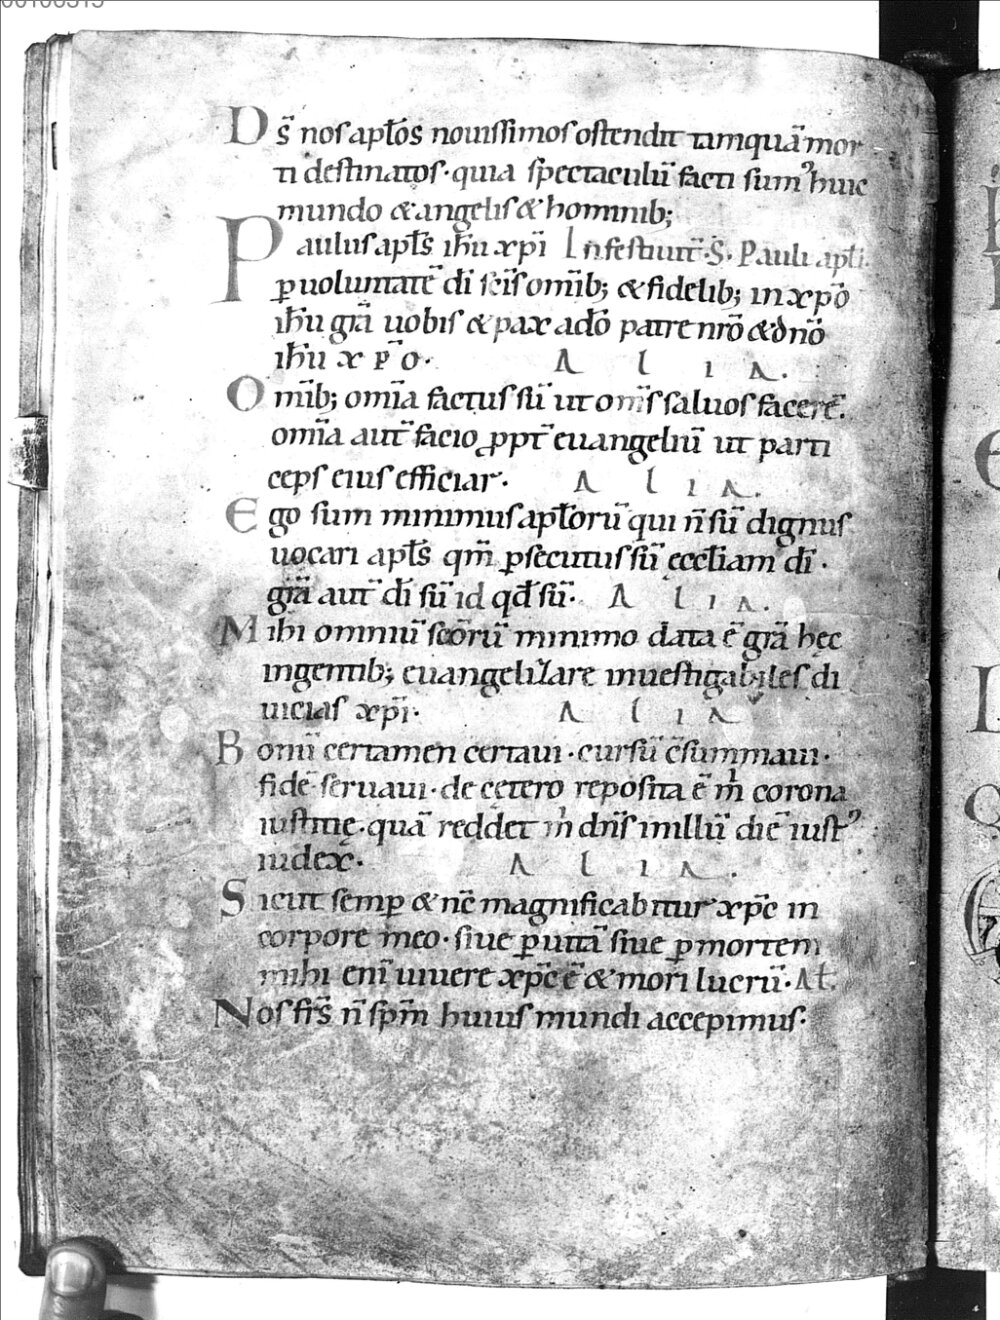 Ds̄ nos apłos nouissimos ostendit tamquā mor
ti destinatos. quia spectaculū facti sumꝰ huic
mundo & angelis & hominib;
Paulus apłs ihū xpi In festiuit̄. S. Pauli apłi.
ꝑ uoluntatē dī sc̄is om̄ib; & fidelib; in xp̄o
ihū grā uobis & pax a dō patre nr̄o & dn̄o
ihū xp̄o. Alia.
Om̄ib; om̄ia factus sū ut om̄s saluos facerē.
om̄ia aut̄ facio ꝓpt̄ euangeliū ut parti
ceps eius efficiar. Alia.
Ego sum minimus apłorū qui n̄ sū dignus
uocari apłs qm̄ ꝑsecutus sū ęccłiam dī.
grā aut̄ dī sū id qđ sū. Alia.
Mihi omniū sc̄orū minimo data ē grā hęc
in gentib; euangelizare inuestigabiles di
uicias xpī. Alia
Bonū certamen certaui. cursū c̄summaui.
fidē seruaui. de cętero reposita ē m̄ corona
iustitię. quā reddet m̄ dn̄s in illū diē iustꝰ
iudex. Alia.
Sicut semꝑ & nc̄ magnificabitur xp̄c in
corpore meo. siue ꝑ uitā siue ꝑ mortem
mihi eni̅ uiuere xp̄c ē & mori lucrū. Ał.
Nos fr̄s n̄ sp̄m huius mundi accepimus.